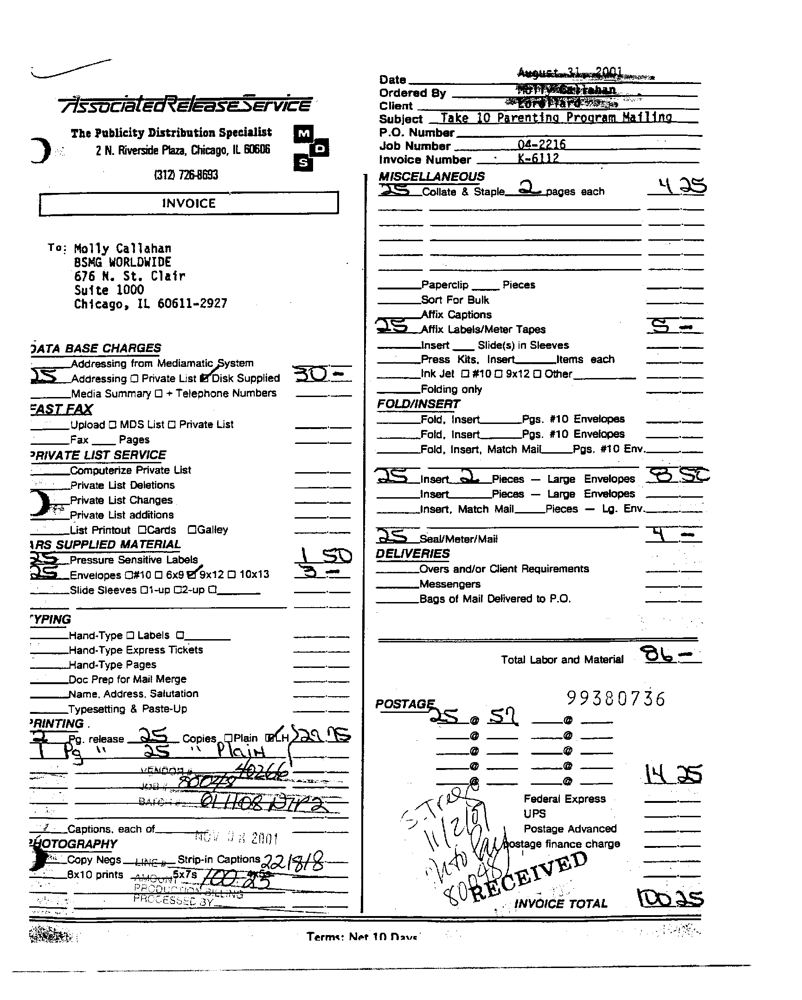 Associated Release Service
The Publicity Distribution Specialist
2 N. Riverside Plaza, Chicago, IL 60606
(312) 726-8693
M
D
S
INVOICE
To: Molly Callahan
BSMG WORLDWIDE
676 N. St. Clair
Suite 1000
Chicago, IL 60611-2927
DATA BASE CHARGES
Addressing from Mediamatic System
25 Addressing □ Private List ☑ Disk Supplied 30 -
Media Summary □ + Telephone Numbers
FAST FAX
Upload □ MDS List □ Private List
Fax ____ Pages
PRIVATE LIST SERVICE
Computerize Private List
Private List Deletions
Private List Changes
Private List additions
List Printout □Cards □Galley
ARS SUPPLIED MATERIAL
25 Pressure Sensitive Labels 1 50
25 Envelopes □#10 □ 6x9 ☑ 9x12 □ 10x13 3 -
Slide Sleeves □1-up □2-up □
TYPING
Hand-Type □ Labels □
Hand-Type Express Tickets
Hand-Type Pages
Doc Prep for Mail Merge
Name, Address, Salutation
Typesetting & Paste-Up
PRINTING
2 Pg. release 25 Copies □Plain ☑LH 29 75
1 Pg " 25 " Plain
VENDOR # 40266
JOB # 80048
BATCH #
Captions, each of
NOV 08 2001
PHOTOGRAPHY
Copy Negs LINE # Strip-in Captions 221818
8x10 prints AMOUNT 5x7s 100.25 4x5s
PRODUCTION BILLING
PROCESSED BY
Date August 31, 2001
Ordered By Molly Callahan
Client Lorillard
Subject Take 10 Parenting Program Mailing
P.O. Number
Job Number 04-2216
Invoice Number K-6112
MISCELLANEOUS
25 Collate & Staple 2 pages each 4 25
Paperclip ____ Pieces
Sort For Bulk
Affix Captions
25 Affix Labels/Meter Tapes 5 -
Insert ____ Slide(s) in Sleeves
Press Kits, Insert____Items each
Ink Jet □ #10 □ 9x12 □ Other
Folding only
FOLD/INSERT
Fold, Insert____Pgs. #10 Envelopes
Fold, Insert____Pgs. #10 Envelopes
Fold, Insert, Match Mail____Pgs. #10 Env.
25 Insert 2 Pieces — Large Envelopes 8 50
Insert____Pieces — Large Envelopes
Insert, Match Mail____Pieces — Lg. Env.
25 Seal/Meter/Mail 4 -
DELIVERIES
Overs and/or Client Requirements
Messengers
Bags of Mail Delivered to P.O.
Total Labor and Material 86 -
99380736
POSTAGE
25 @ 57 @
@ @
@ @
@ @
@ @ 14 25
Federal Express
UPS
Postage Advanced
postage finance charge
11/2/01
80048
RECEIVED
INVOICE TOTAL 100 25
Terms: Net 10 Days